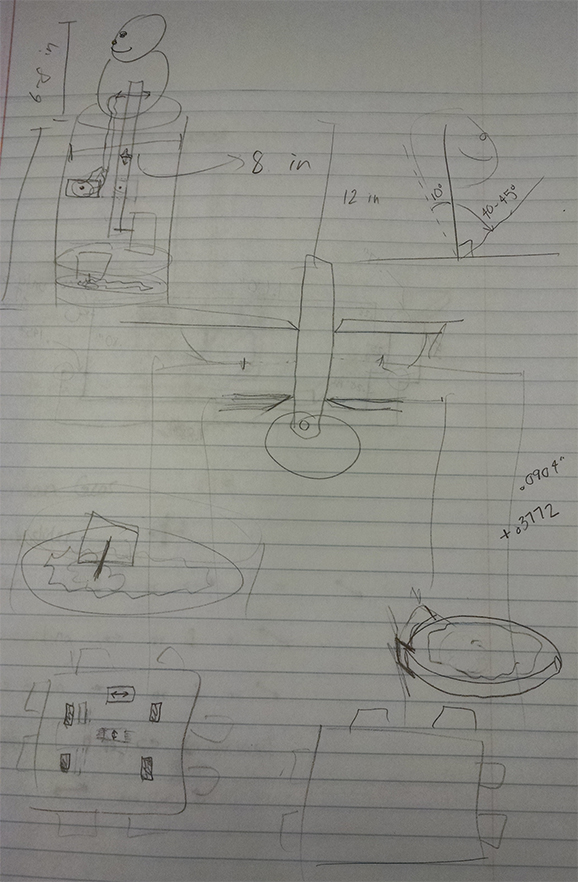 8 in
12 in
10°
40-45°
.0904"
+.3772